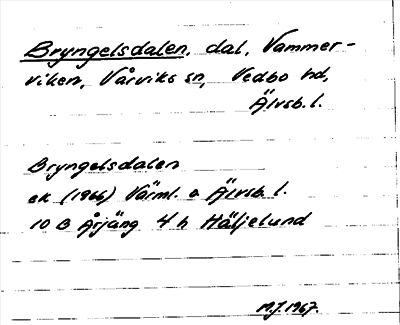 Bryngelsdalen, dal, Vammer-
viken, Vårviks sn, Vedbo hd,
Älvsb. l.
Bryngelsdalen
ek (1966) Värml. o Älvsb. l.
10 B Årjäng 4 h Häljelund
M.J. 1967.